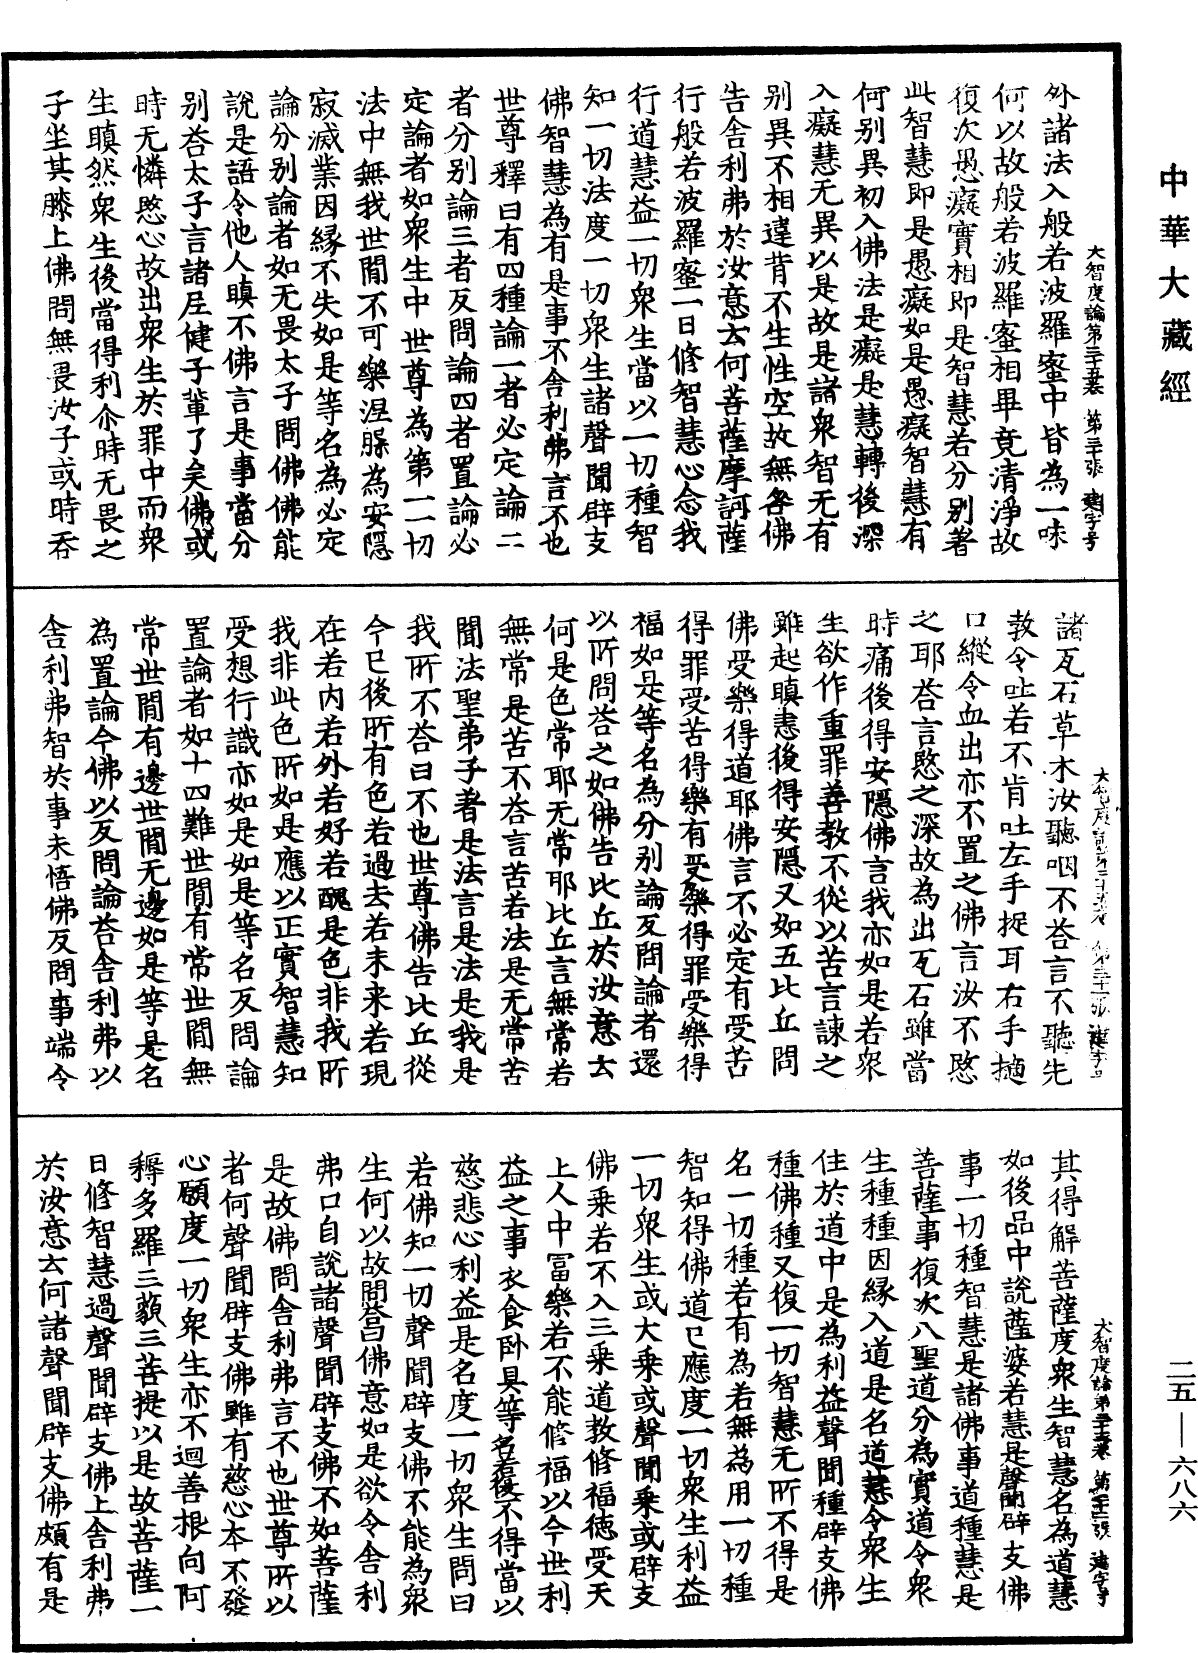 中華大藏經
大智度論第三十五卷 第三十張 建字号
外諸法入般若波羅蜜中皆為一味
何以故般若波羅蜜相畢竟清淨故
復次愚癡實相即是智慧若分別著
此智慧即是愚癡如是愚癡智慧有
何別異初入佛法是癡是慧轉後深
入癡慧无異以是故是諸衆智无有
別異不相違背不生性空故無咎佛
告舍利弗於汝意云何菩薩摩訶薩
行般若波羅蜜一日修智慧心念我
行道慧益一切衆生當以一切種智
知一切法度一切衆生諸聲聞辟支
佛智慧為有是事不舍利弗言不也
世尊釋曰有四種論一者必定論二
者分別論三者反問論四者置論必
定論者如衆生中世尊為第一一切
法中無我世間不可樂涅槃為安隱
寂滅業因緣不失如是等名為必定
論分別論者如无畏太子問佛佛能
說是語令他人瞋不佛言是事當分
別荅太子言諸尼健子輩了矣佛或
時无憐愍心故出衆生於罪中而衆
生瞋然衆生後當得利尒時无畏之
子坐其膝上佛問無畏汝子或時呑
諸瓦石草木汝聽咽不荅言不聽先
教令吐若不肯吐左手捉耳右手擿
口縱令血出亦不置之佛言汝不愍
之耶荅言愍之深故為出瓦石雖當
時痛後得安隱佛言我亦如是若衆
生欲作重罪善教不從以苦言諫之
雖起瞋恚後得安隱又如五比丘問
佛受樂得道耶佛言不必定有受苦
得罪受苦得樂有受樂得罪受樂得
福如是等名為分別論反問論者還
以所問荅之如佛告比丘於汝意云
何是色常耶无常耶比丘言無常若
無常是苦不荅言苦若法是无常苦
聞法聖弟子著是法言是法是我是
我所不荅曰不也世尊佛告比丘從
今已後所有色若過去若未来若現
在若内若外若好若醜是色非我所
我非此色所如是應以正實智慧知
受想行識亦如是如是等名反問論
置論者如十四難世間有常世間無
常世間有邊世間无邊如是等是名
為置論今佛以反問論荅舍利弗以
舍利弗智於事未悟佛反問事端令
大智度論第三十五卷 第三十二張 建字号
其得解菩薩度衆生智慧名為道慧
如後品中說薩婆若慧是聲聞辟支佛
事一切種智慧是諸佛事道種慧是
菩薩事復次八聖道分為實道令衆
生種種因緣入道是名道慧令衆生
住於道中是為利益聲聞種辟支佛
種佛種又復一切智慧无所不得是
名一切種若有為若無為用一切種
智知得佛道已應度一切衆生利益
一切衆生或大乗或聲聞乗或辟支
佛乗若不入三乗道教修福德受天
上人中冨樂若不能修福以今世利
益之事衣食卧具等名若復不得當以
慈悲心利益是名度一切衆生問曰
若佛知一切聲聞辟支佛不能為衆
生何以故問荅曰佛意如是欲令舍利
弗口自說諸聲聞辟支佛不如菩薩
是故佛問舍利弗言不也世尊所以
者何聲聞辟支佛雖有慈心本不發
心願度一切衆生亦不迴善根向阿
耨多羅三藐三菩提以是故菩薩一
日修智慧過聲聞辟支佛上舍利弗
於汝意云何諸聲聞辟支佛頗有是
二五—六八六